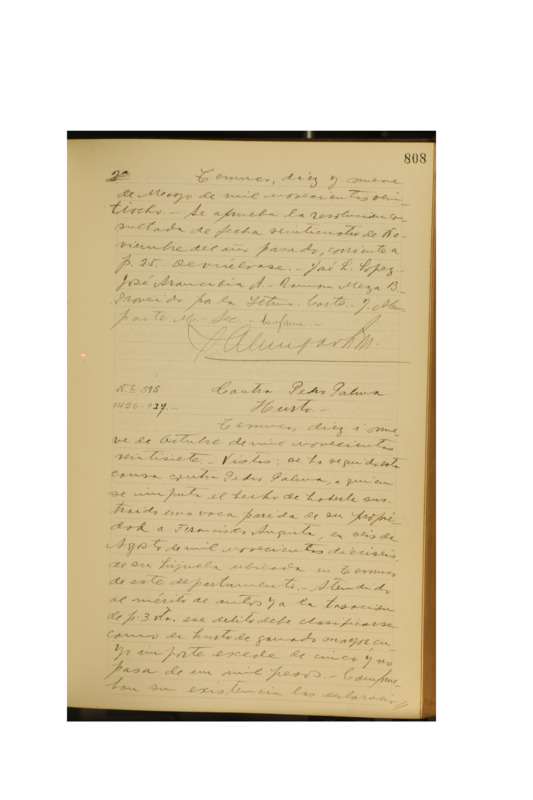 808
2ª Temuco, diez y nueve
de Marzo de mil novecientos vein-
tiocho.- Se aprueba la resolucion con-
sultada de fecha veinticuatro de No-
viembre del año pasado, corriente a
f. 25. Devuélvase.- José L. Lopez.-
José Arancibia A.- Ramon Meza B.-
Proveido por la Iltma. Corte.- J. Alem-
parte M.- Sec.- Conforme.-
J Alemparte M.
Nº 595 Contra Pedro Palma
927.- Hurto.-
Temuco, diez i nue-
ve de Octubre de mil novecientos
veintisiete.- Vistos: se ha seguido esta
causa contra Pedro Palma, a quien
se imputa el hecho de haberle sus-
traido una vaca parida de su propie-
dad a Francisco Angurta, en seis de
Agosto de mil novecientos dieciseis
de su hijuela ubicada en Temuco
de este departamento.- Atendido
al mérito de autos y a la tasacion
de f. 3 vta. ese delito debe clasificarse
como en hurto de ganado mayor cu-
yo importe excede de cinco y no
pasa de un mil pesos.- Comprue-
ban su existencia las declaracio